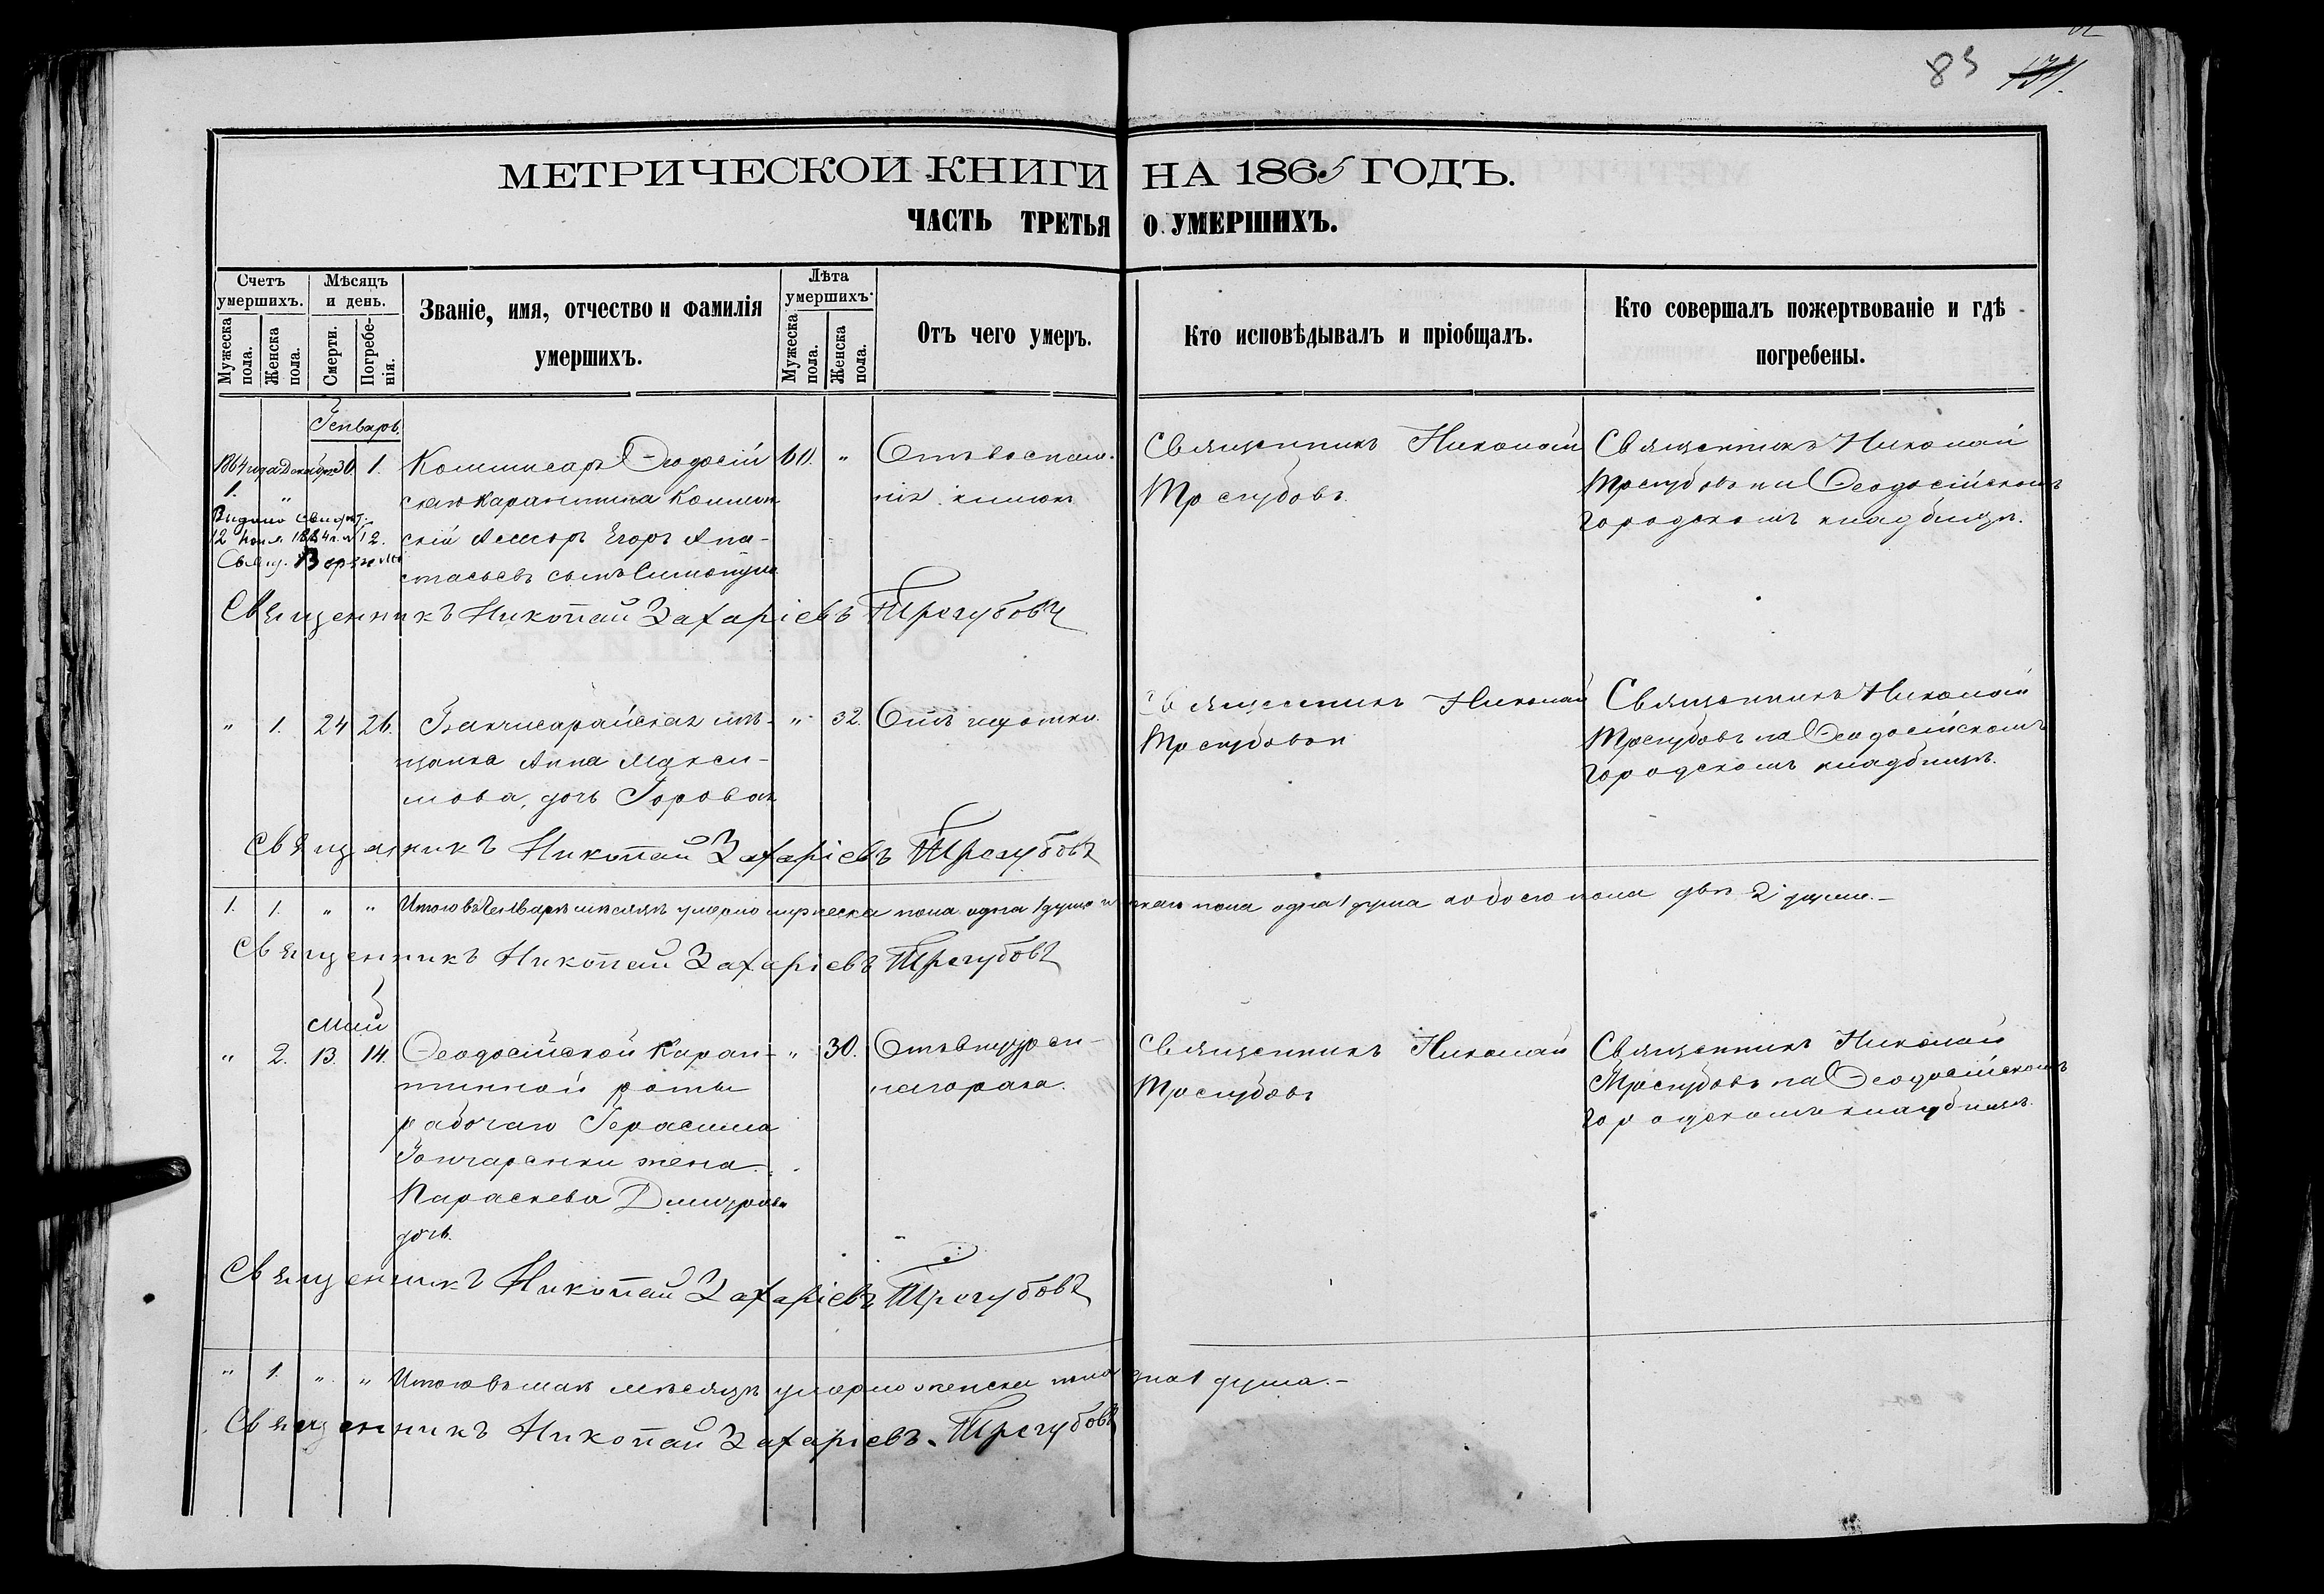 83 131.
МЕТРИЧЕСКОЙ КНИГИ НА 1865 ГОДЪ.
ЧАСТЬ ТРЕТЬЯ О УМЕРШИХЪ.
Счетъ умершихъ.
Мужеска пола.
Женска пола.
Мѣсяцъ и день.
Смерти.
Погребенія.
Званіе, имя, отчество и фамилія
умершихъ.
Лѣта умершихъ.
Мужеска пола.
Женска пола.
Отъ чего умеръ.
Кто исповѣдывалъ и пріобщалъ.
Кто совершалъ пожертвованіе и гдѣ
погребены.
Генварь.
1864 года Декабря 30 1.
1. "
Выдано свидѣт.
12 1884 г. № 12.
Свящ.
Коммисаръ Ѳеодосій
скаго Карантина Коллеж
скій Асессоръ Егоръ Ана-
стасьевъ сынъ
61. "
Отъ воспале-
нія кишокъ
Священникъ Николай
Трегубовъ.
Священникъ Николай
Трегубовъ на Ѳеодосійскомъ
городскомъ кладбищѣ.
Священникъ Николай Захаріевъ Трегубовъ
" 1. 24 26.
Бакчисарайская мѣ-
щанка Анна Макси-
мова дочь Горовая
" 32.
Отъ чахотки.
Священникъ Николай
Трегубовъ
Священникъ Николай
Трегубовъ на Ѳеодосійскомъ
городскомъ кладбищѣ.
Священникъ Николай Захаріевъ Трегубовъ
1. 1. " " Итого въ Генварѣ мѣсяцѣ умерло мужеска пола одна 1 душа женскаго пола одна 1 душа а обоего пола двѣ 2 души.-
Священникъ Николай Захаріевъ Трегубовъ
Май
" 2. 13. 14.
Ѳеодосійской Каран-
тинной роты
рабочаго Герасима
Гончаренки жена
Параскева Дмитріева
дочь.
" 30.
Отъ внутрен-
Священникъ Николай
Трегубовъ
Священникъ Николай
Трегубовъ на Ѳеодосійскомъ
городскомъ кладбищѣ.
Священникъ Николай Захаріевъ Трегубовъ
" 1. " " Итого въ маѣ мѣсяцѣ умерло женска пола одна 1 душа.-
Священникъ Николай Захаріевъ Трегубовъ